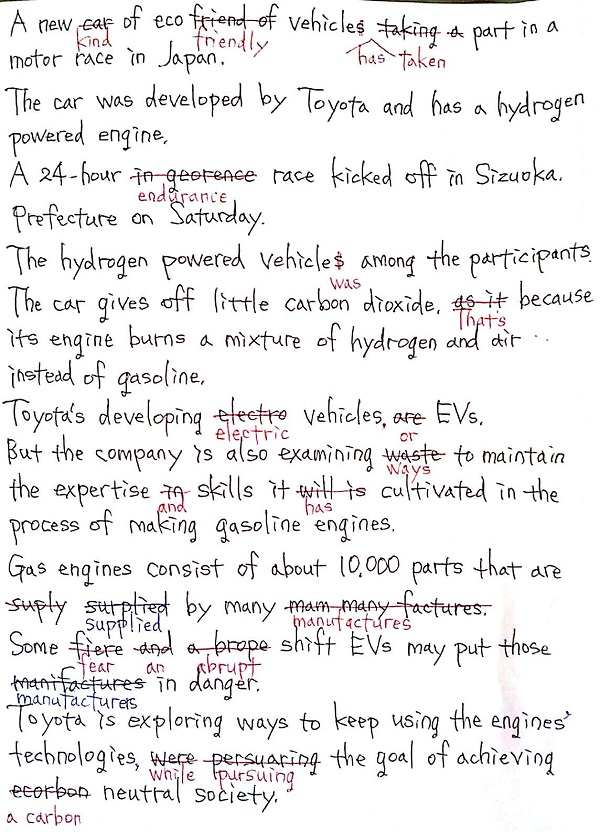 A new car of eco friend of vehicles taking a part in a
kind friendly has taken
motor race in Japan.
The car was developed by Toyota and has a hydrogen
powered engine.
A 24-hour in georence race kicked off in Sizuoka.
endurance
Prefecture on Saturday.
The hydrogen powered vehicles among the participants.
was
The car gives off little carbon dioxide, as it because
That's
its engine burns a mixture of hydrogen and air
instead of gasoline.
Toyota's developing electro vehicles, are EVs.
electric or
But the company is also examining waste to maintain
ways
the expertise in skills it will is cultivated in the
and has
process of making gasoline engines.
Gas engines consist of about 10,000 parts that are
suply surplied by many mam many factures.
supplied manufactures
Some fiere and a brope shift EVs may put those
fear an abrupt
manifactures in danger.
manufacturers
Toyota is exploring ways to keep using the engines'
technologies, were persuaring the goal of achieving
while pursuing
ecorbon neutral society.
a carbon